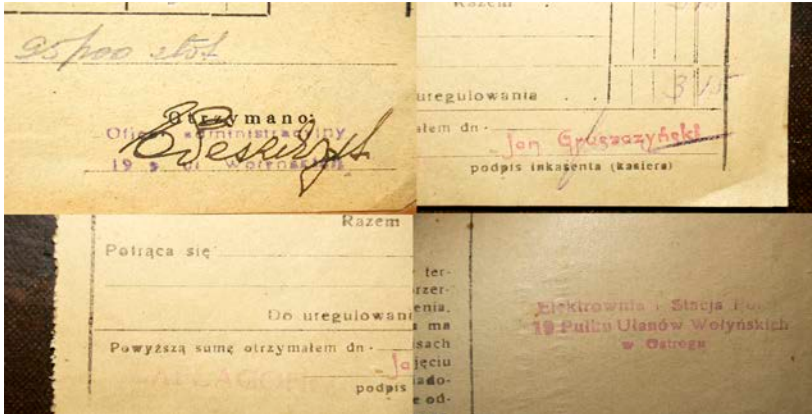 95/100 złot
Otrzymano:
Oficer administracyjny
19 p. uł. Wołyńskich
Razem
315
uregulowania
3 15
ałem dn.
Jan Gruszczyński
podpis inkasenta (kasiera)
Razem
Potrąca się
Do uregulowani
Powyższą sumę otrzymałem dn.
Ja
podpis
ter-
rzer-
enia.
ma
sach
jęciu
iado-
e od-
Elektrownia i Stacja
19 Pułku Ułanów Wołyńskich
w Ostrogu